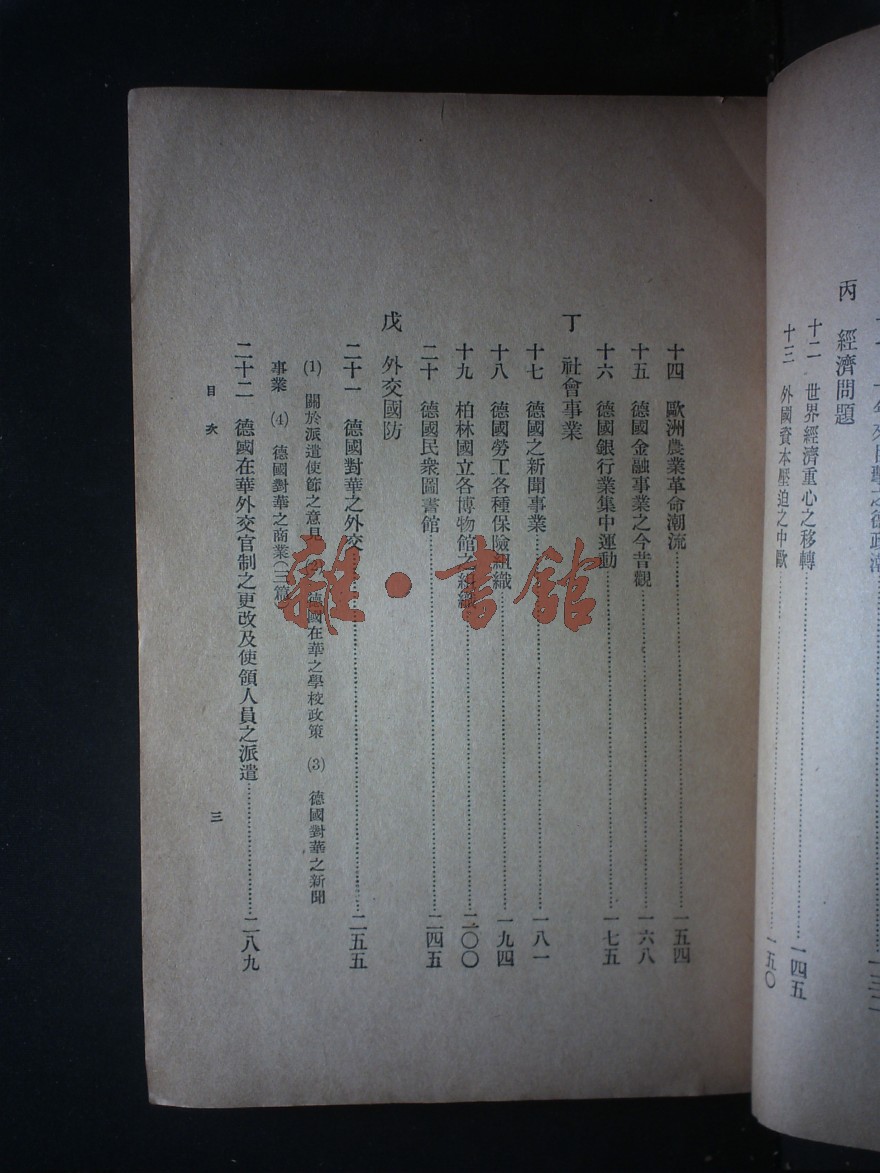 丙　經濟問題
十二　世界經濟重心之移轉……一四五
十三　外國資本壓迫之中歐……一五〇
十四　歐洲農業革命潮流……一五四
十五　德國金融事業之今昔觀……一六八
十六　德國銀行業集中運動……一七五
丁　社會事業
十七　德國之新聞事業……一八一
十八　德國勞工各種保險組織……一九四
十九　柏林國立各博物館之組織……二〇〇
二十　德國民衆圖書館……二四五
戊　外交國防
二十一　德國對華之外交……二五五
(1)　關於派遣使節之意見　德國在華之學校政策　(3)　德國對華之新聞
事業　(4)　德國對華之商業(三篇
二十二　德國在華外交官制之更改及使領人員之派遣……二八九
目次　三
雜・書館